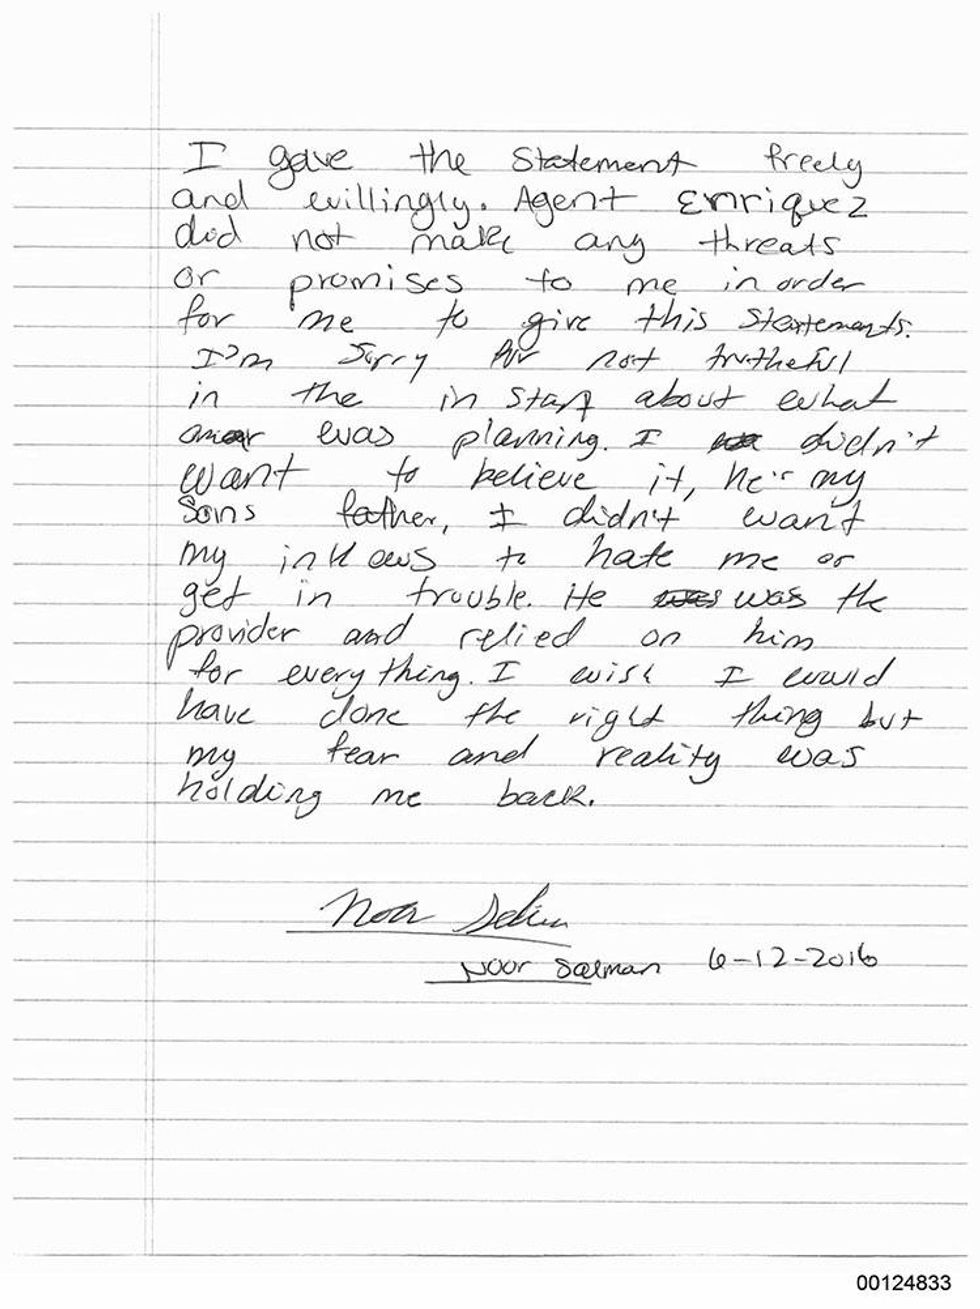 I gave the Statement freely
and willingly. Agent Enriquez
did not make any threats
or promises to me in order
for me to give this Statements.
I'm Sorry for not trutheful
in the in start about what
omar was planning. I didn't
want to believe it, he's my
Sons father, I didn't want
my in laws to hate me or
get in trouble. He was the
provider and relied on him
for everything. I wish I would
have done the right thing but
my fear and reality was
holding me back.
Noor Salman
Noor Salman 6-12-2016
00124833